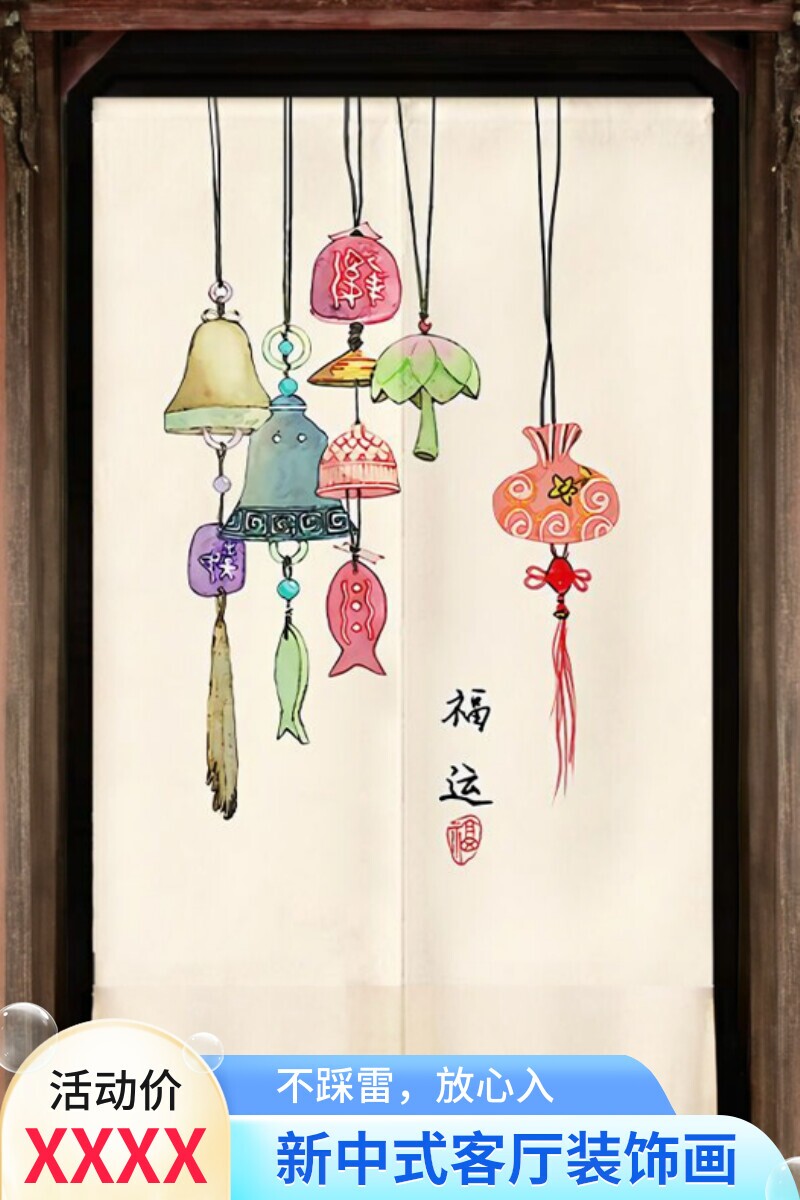 福
运
福
活动价
XXXX
不踩雷，放心入
新中式客厅装饰画